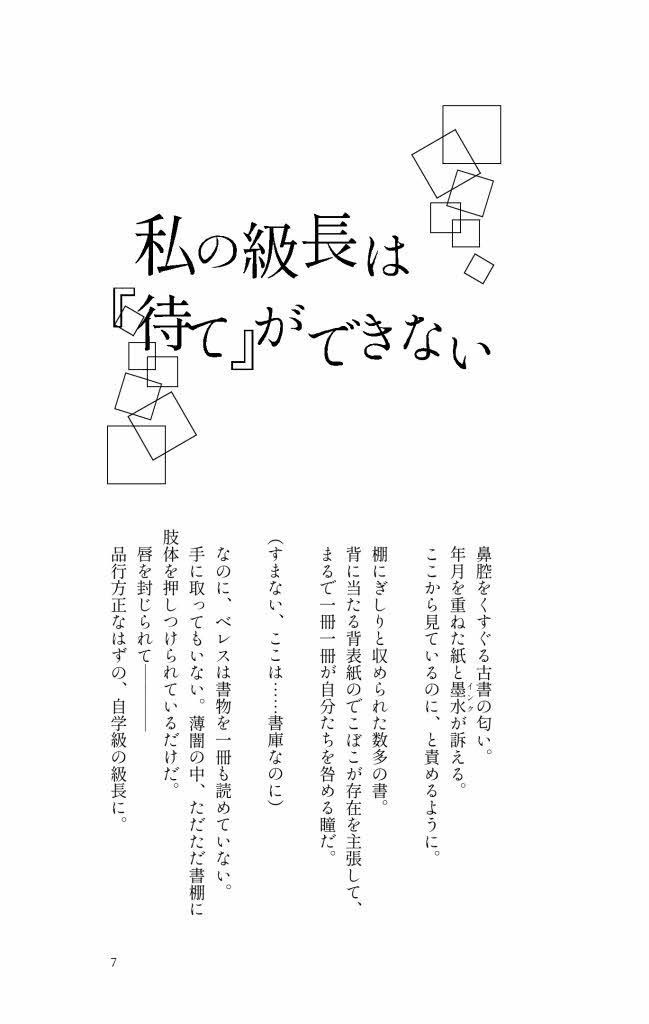 私の級長は
『待て』ができない
鼻腔をくすぐる古書の匂い。
年月を重ねた紙と墨水が訴える。
インク
ここから見ているのに、と責めるように。
棚にぎしりと収められた数多の書。
背に当たる背表紙のでこぼこが存在を主張して、
まるで一冊一冊が自分たちを咎める瞳だ。
（すまない、ここは……書庫なのに）
なのに、ベレスは書物を一冊も読めていない。
手に取ってもいない。薄闇の中、ただただ書棚に
肢体を押しつけられているだけだ。
唇を封じられて――――
品行方正なはずの、自学級の級長に。
7